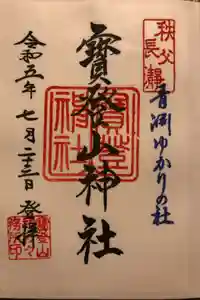 秩父
長瀞
青淵ゆかりの社
寶登山神社
寶登山神社
令和五年七月二十三日登拝